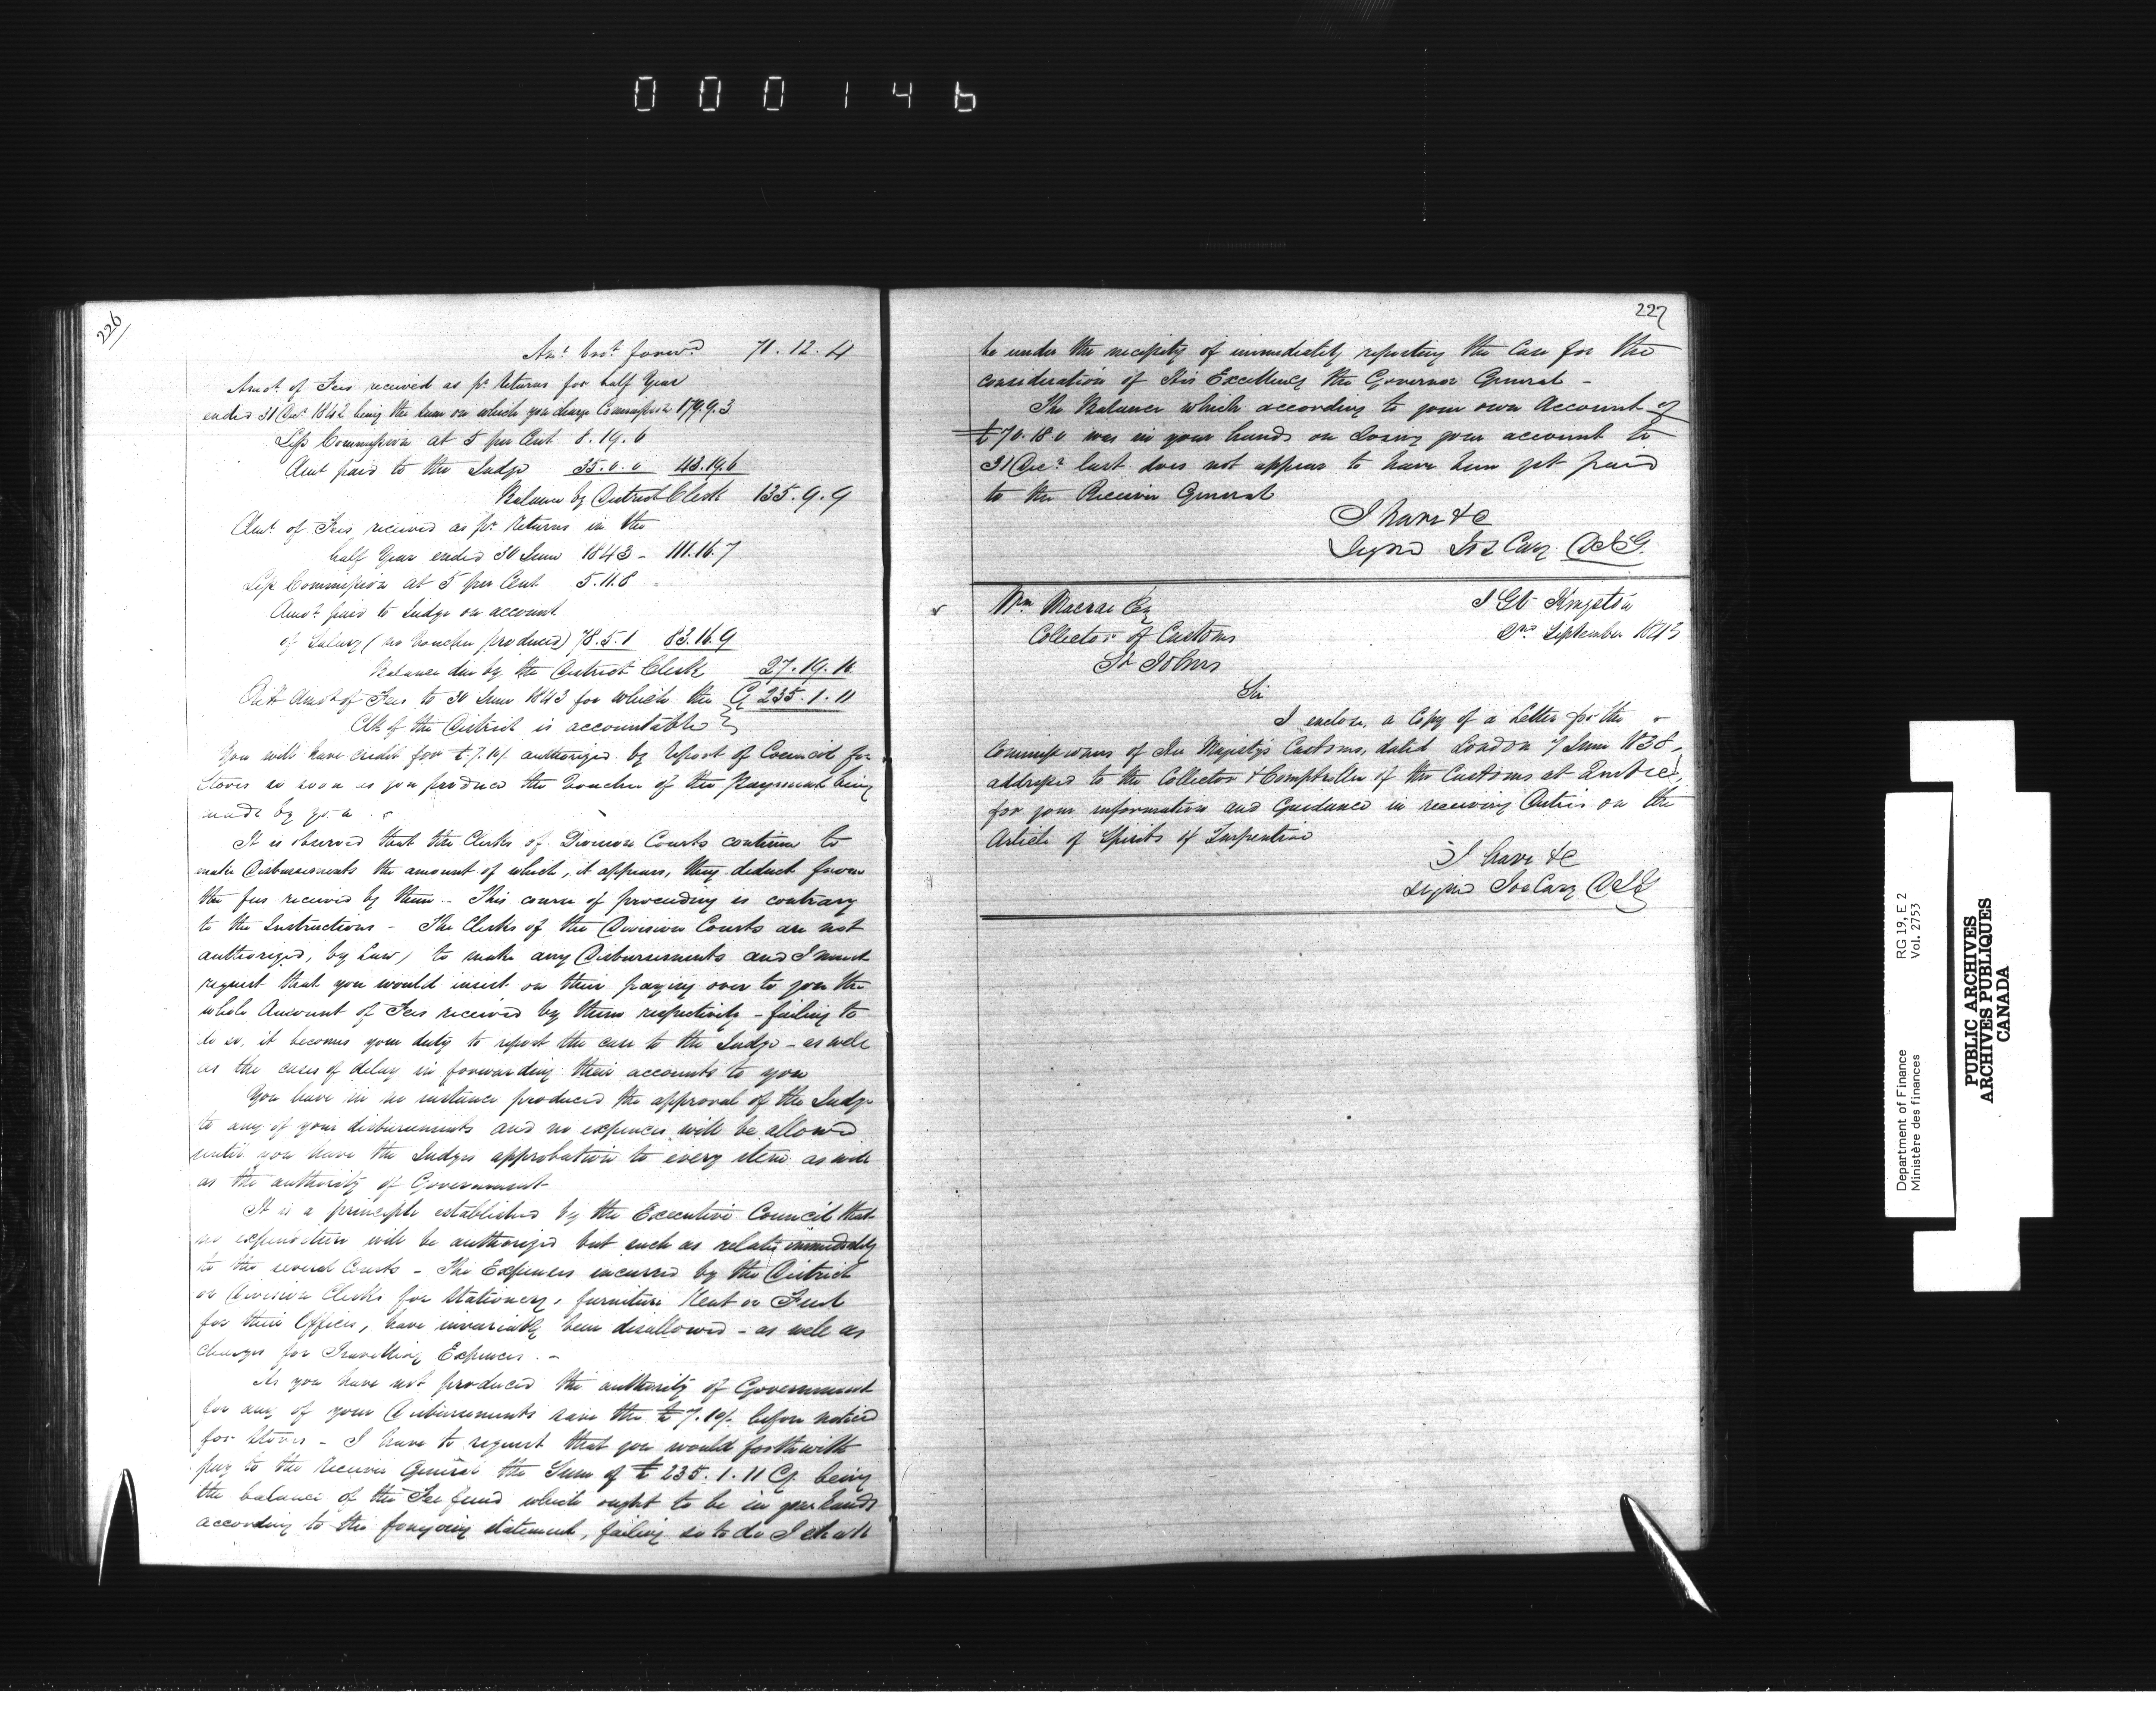 000146
226
Amt. brot. forwd. 71.12.4
Amot. of Fees received as pr. Returns for half Year
ended 31 Decr. 1842 being the sum on which you charge Commission 179.9.3
Less Commission at 5 per Cent 8.19.6
Amt paid to the Judge 35.0.0 43.19.6
Balance by District Clerk 135.9.9
Amt. of Fees received as pr. Returns in the
half Year ended 30 June 1843 - 111.16.7
Less Commission at 5 per Cent 5.11.8
Amot. paid to Judge on account
of Salary (no Voucher produced) 78.5.1 83.16.9
Balance due by the District Clerk 27.19.10
Amot of Fees to 30 June 1843 for which the Cy 235.1.11
Clk of the District is accountable
You will have credit for £7.10/. authorized by Report of Council for
Stoves so soon as you produce the Voucher of the Payment being
made by you
It is observed that the Clerks of Division Courts continue to
make Disbursements the amount of which, it appears, they deduct from
the fees received by them - This course of proceeding is contrary
to the Instructions - The Clerks of the Division Courts are not
authorized, by Law, to make any Disbursements and I must
request that you would insist on their paying over to you the
whole Amount of Fees received by them respectively - failing to
do so, it becomes your duty to report the case to the Judge - as well
as the cases of delay in forwarding their accounts to you
You have in no instance produced the approval of the Judge
to any of your disbursements and no expences will be allowed
until you have the Judges approbation to every item as well
as the authority of Government
It is a principle established by the Executive Council that
no expenditure will be authorized but such as relates immediately
to the several Courts - The Expences incurred by the District
or Division Clerks for Stationery, furniture Rent or Fuel
for their Offices, have invariably been disallowed - as well as
charges for Travelling Expences. -
As you have not produced the authority of Government
for any of your Disbursements save the £7.10/. before noticed
for Stoves - I have to request that you would forthwith
pay to the Receiver General the Sum of £235.1.11 Cy. being
the balance of the Fee fund which ought to be in your hands
according to the foregoing statement, failing so to do I shall
227
be under the necessity of immediately reporting the Case for the
consideration of His Excellency the Governor General -
The Balance which according to your own Account of
£70.18.0 was in your hands on closing your account to
31 Decr. last does not appear to have been yet paid
to the Receiver General
I have &c
Signed Jos Cary D I G.
Wm Macrae Esq
Collector of Customs
St Johns
I G O Kingston
September 1843
Sir
I enclose, a Copy of a Letter for the
Commissioners of Her Majesty's Customs, dated London 7 June 1838,
addressed to the Collector & Comptroller of the Customs at Quebec,
for your information and Guidance in receiving Duties on the
Article of Spirits of Turpentine
I have &c
Signed Jos Cary D I G
Department of Finance RG 19, E 2
Ministère des finances Vol. 2753
PUBLIC ARCHIVES
ARCHIVES PUBLIQUES
CANADA